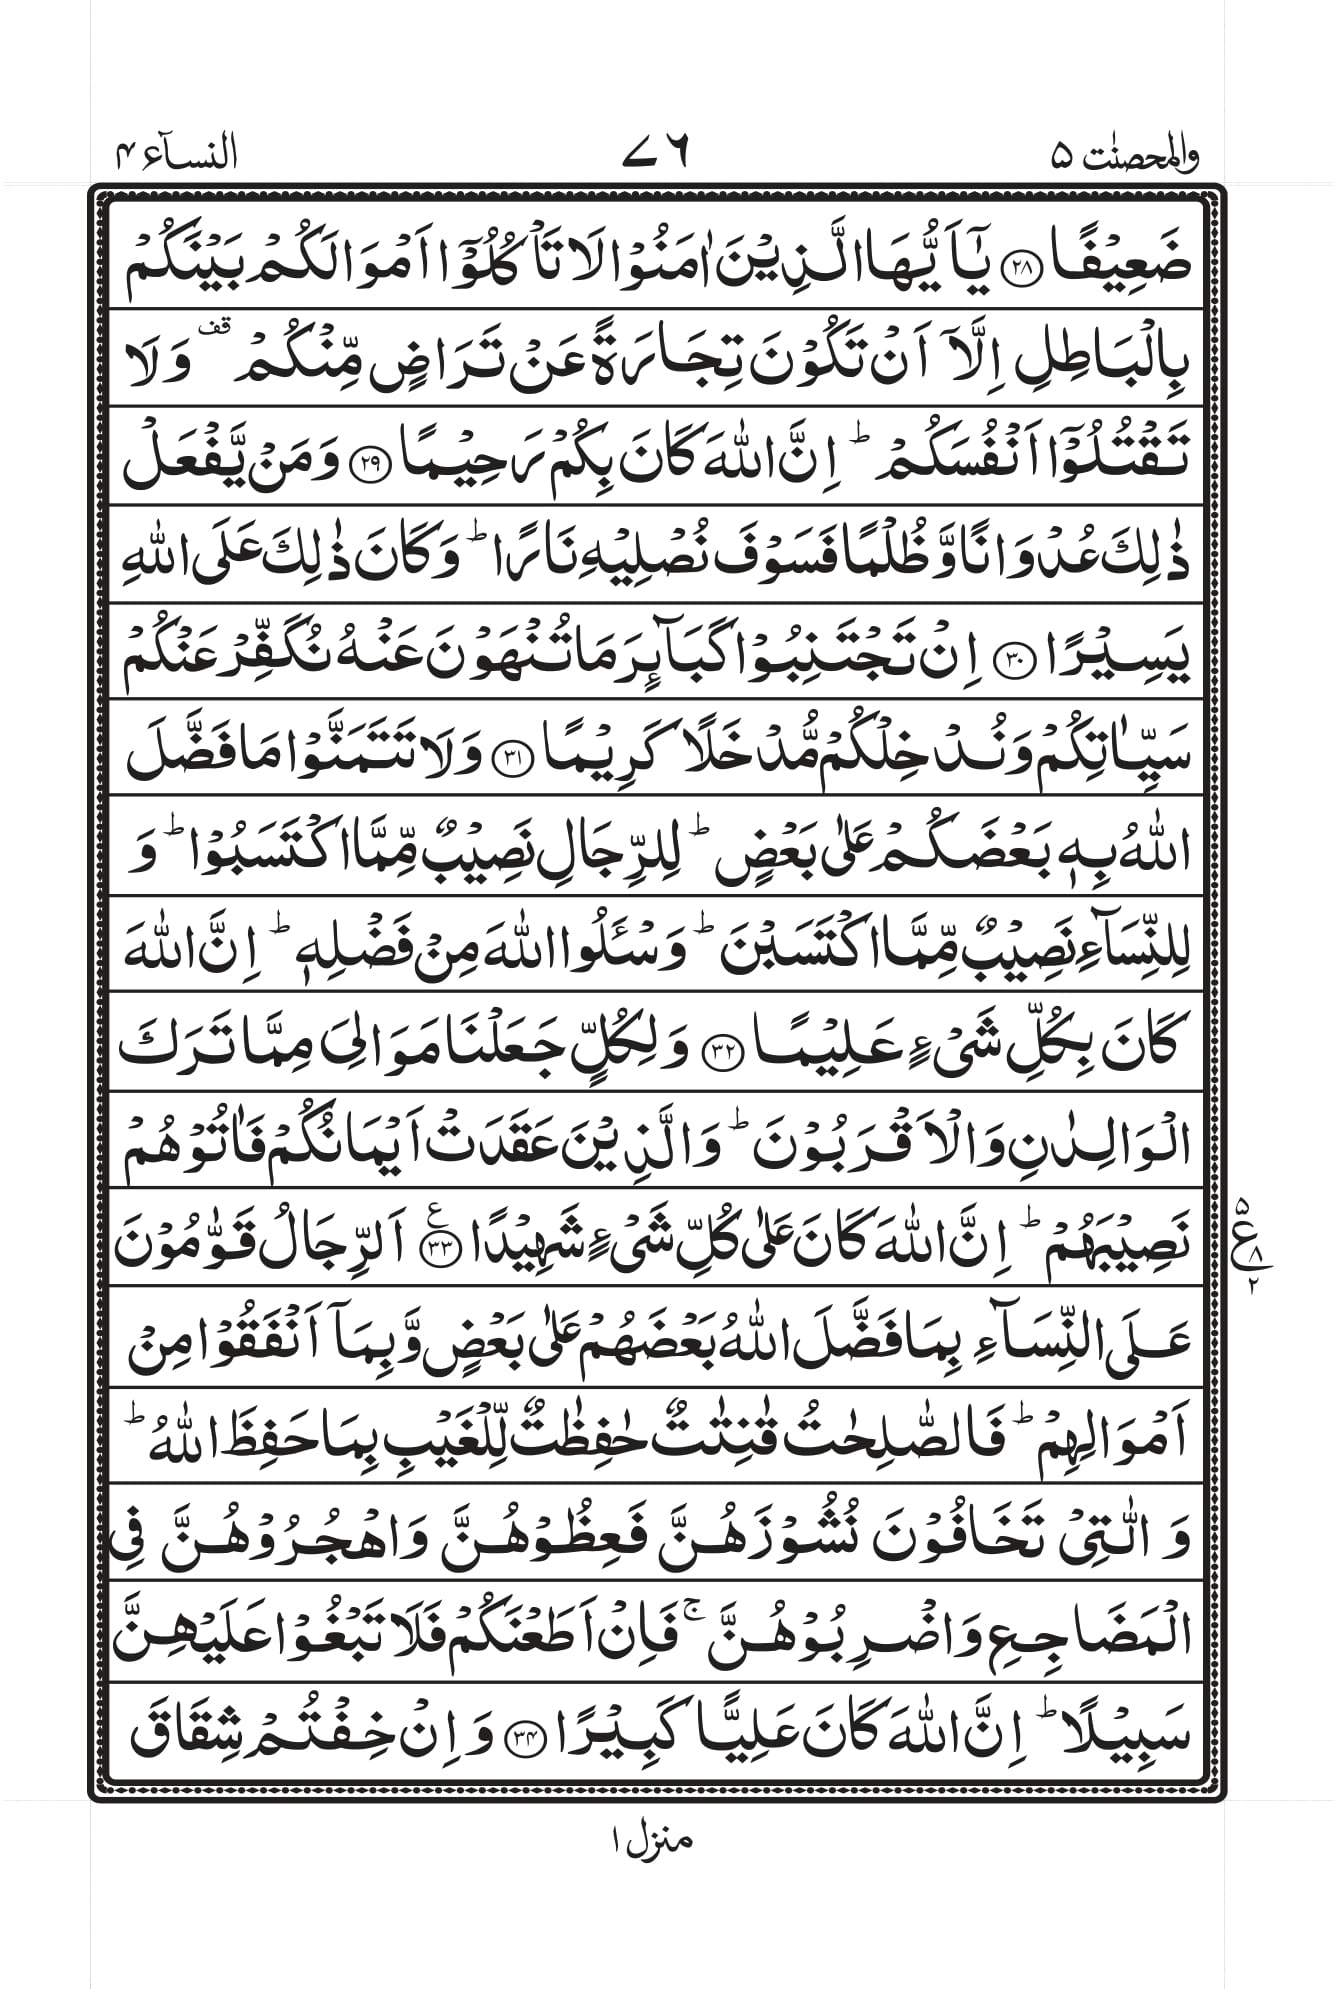 والمحصنٰت ۵ ۷۶ النسآء ۴
ضَعِيْفًا ۝۲۸ يٰۤاَيُّهَا الَّذِيْنَ اٰمَنُوْا لَا تَاْكُلُوْۤا اَمْوَالَكُمْ بَيْنَكُمْ
بِالْبَاطِلِ اِلَّاۤ اَنْ تَكُوْنَ تِجَارَةً عَنْ تَرَاضٍ مِّنْكُمْ قف وَلَا
تَقْتُلُوْۤا اَنْفُسَكُمْ ؕ اِنَّ اللّٰهَ كَانَ بِكُمْ رَحِيْمًا ۝۲۹ وَمَنْ يَّفْعَلْ
ذٰلِكَ عُدْوَانًا وَّظُلْمًا فَسَوْفَ نُصْلِيْهِ نَارًا ؕ وَكَانَ ذٰلِكَ عَلَى اللّٰهِ
يَسِيْرًا ۝۳۰ اِنْ تَجْتَنِبُوْا كَبَآئِرَ مَا تُنْهَوْنَ عَنْهُ نُكَفِّرْ عَنْكُمْ
سَيِّاٰتِكُمْ وَنُدْخِلْكُمْ مُّدْخَلًا كَرِيْمًا ۝۳۱ وَلَا تَتَمَنَّوْا مَا فَضَّلَ
اللّٰهُ بِهٖ بَعْضَكُمْ عَلٰى بَعْضٍ ؕ لِلرِّجَالِ نَصِيْبٌ مِّمَّا اكْتَسَبُوْا ؕ وَ
لِلنِّسَآءِ نَصِيْبٌ مِّمَّا اكْتَسَبْنَ ؕ وَسْـَٔلُوا اللّٰهَ مِنْ فَضْلِهٖ ؕ اِنَّ اللّٰهَ
كَانَ بِكُلِّ شَىْءٍ عَلِيْمًا ۝۳۲ وَلِكُلٍّ جَعَلْنَا مَوَالِىَ مِمَّا تَرَكَ
الْوَالِدٰنِ وَالْاَقْرَبُوْنَ ؕ وَالَّذِيْنَ عَقَدَتْ اَيْمَانُكُمْ فَاٰتُوْهُمْ
نَصِيْبَهُمْ ؕ اِنَّ اللّٰهَ كَانَ عَلٰى كُلِّ شَىْءٍ شَهِيْدًا ۝۳۳ ع اَلرِّجَالُ قَوّٰمُوْنَ
۵ ع ۸ ۲
عَلَى النِّسَآءِ بِمَا فَضَّلَ اللّٰهُ بَعْضَهُمْ عَلٰى بَعْضٍ وَّبِمَاۤ اَنْفَقُوْا مِنْ
اَمْوَالِهِمْ ؕ فَالصّٰلِحٰتُ قٰنِتٰتٌ حٰفِظٰتٌ لِّلْغَيْبِ بِمَا حَفِظَ اللّٰهُ ؕ
وَالّٰتِىْ تَخَافُوْنَ نُشُوْزَهُنَّ فَعِظُوْهُنَّ وَاهْجُرُوْهُنَّ فِى
الْمَضَاجِعِ وَاضْرِبُوْهُنَّ ۚ فَاِنْ اَطَعْنَكُمْ فَلَا تَبْغُوْا عَلَيْهِنَّ
سَبِيْلًا ؕ اِنَّ اللّٰهَ كَانَ عَلِيًّا كَبِيْرًا ۝۳۴ وَاِنْ خِفْتُمْ شِقَاقَ
منزل ۱